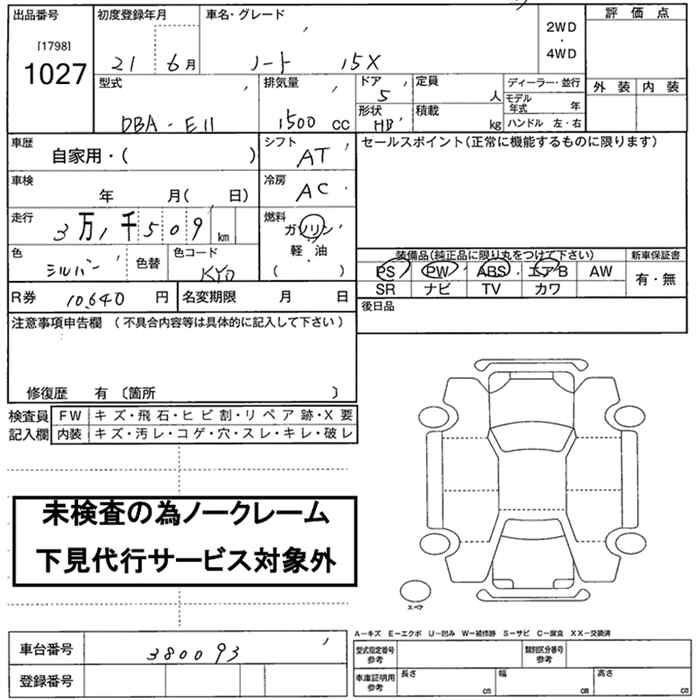 出品番号 初度登録年月 車名・グレード 評価点
[1798] 2WD・4WD
1027 21 6月 ノート 15X
型式 排気量 ドア 5 定員 人 ディーラー・並行 外装 内装
モデル年式 年
DBA-E11 1500 cc 形状 HB 積載 kg ハンドル 左・右
車歴 自家用・( ) シフト AT セールスポイント(正常に機能するものに限ります)
車検 年 月( 日) 冷房 AC
走行 3万1千509 km 燃料 ガソリン
軽油
( )
色 シルバー 色替 色コード KY0 装備品(純正品に限り丸をつけて下さい) 新車保証書
PS PW ABS エアB AW 有・無
R券 10,640 円 名変期限 月 日 SR ナビ TV カワ
注意事項申告欄 (不具合内容等は具体的に記入して下さい) 後日品
修復歴 有 〔箇所 〕
検査員 FW キズ・飛石・ヒビ割・リペア跡・X要
記入欄 内装 キズ・汚レ・コゲ・穴・スレ・キレ・破レ
未検査の為ノークレーム
下見代行サービス対象外
スペア
A-キズ E-エクボ U-凹み W-補修跡 S-サビ C-腐食 XX-交換済
車台番号 380093 型式指定番号 参考 類別区分番号 参考
登録番号 車庫証明用 参考 長さ cm 幅 cm 高さ cm